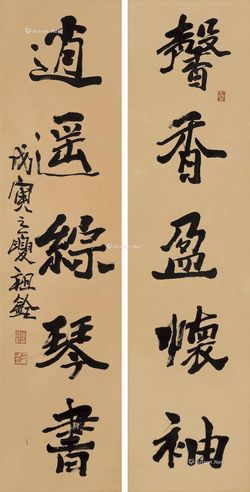 馨香盈懷袖
逍遥綜琴書
戊寅之夏祖銓